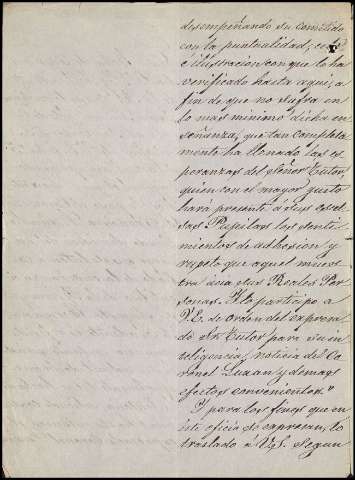 desempeñando su cometido
con la puntualidad, celo
e illustracion con que lo ha
verificado hasta aqui; a
fin de que no sufra en
lo mas minimo dicha en
señanza, que tan completa
mente ha llenado las es
peranzas del Señor Tutor,
quien con el mayor gusto
hará presente á sus escel
sas Pupilas los senti
mientos de adhesion y
respeto que aquel mues
tra ácia sus Reales Per
sonas. Y lo participo a
V.E. de orden del espresa
do Sr. Tutor para su in
teligencia, noticia del Co
ronel Luxan y demas
efectos convenientes."
Y para los fines que en
este oficio se espresan, lo
traslado á V.S. segun